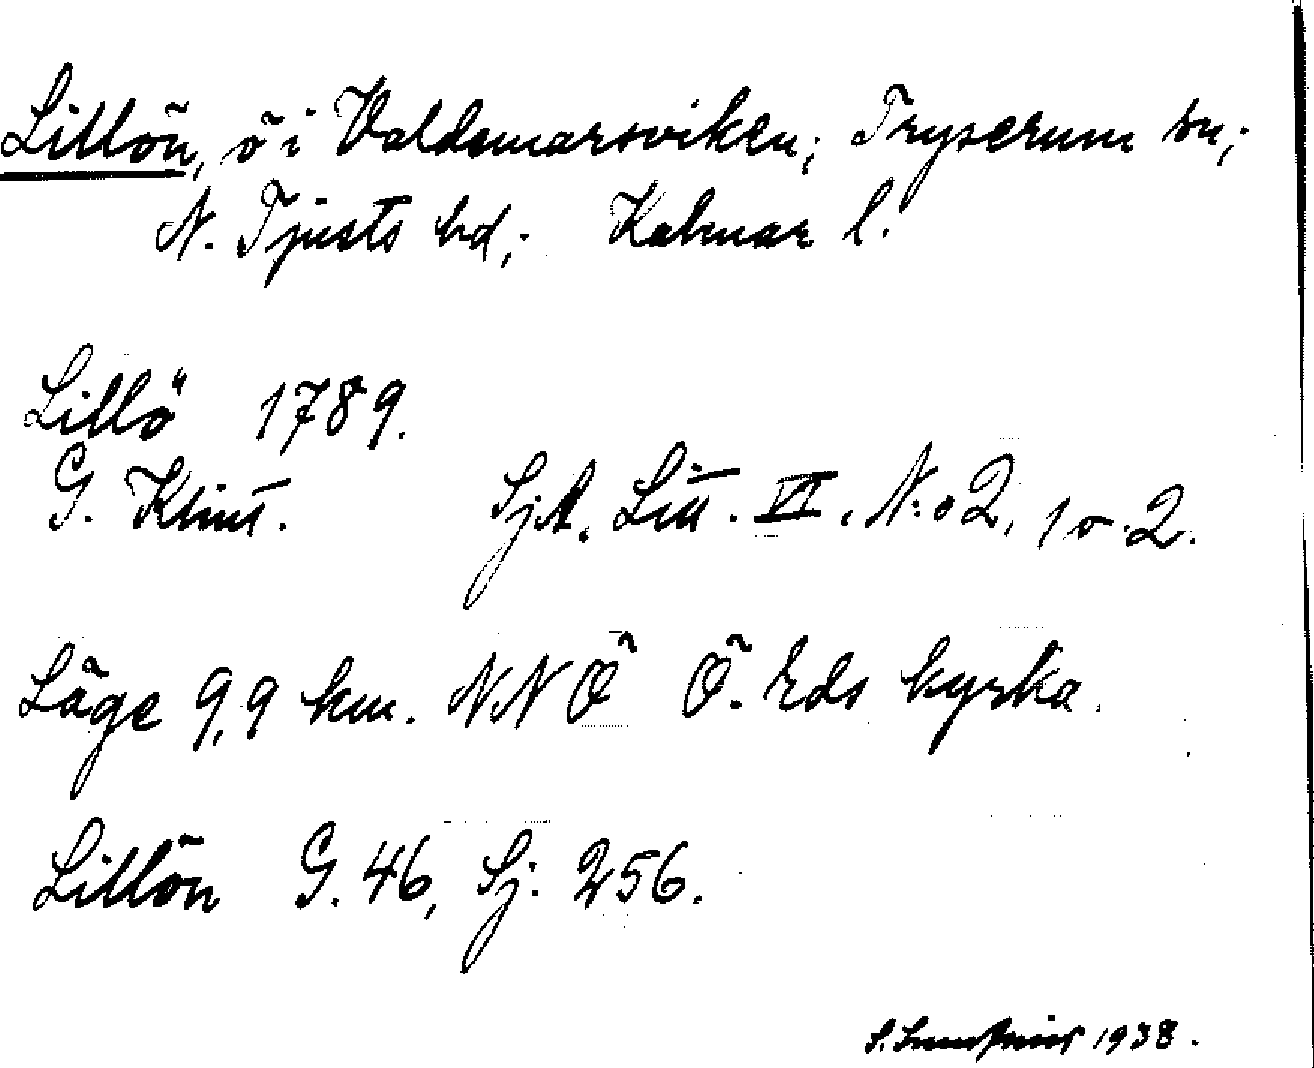 Lillön, ö i Valdemarsviken; Tryserum sn;
N. Tjusts hd; Kalmar l.
Lillö 1789.
G. Klint. SjA. Litt. VI. N:o 2, 1 o. 2.
Läge 9,9 km. NNÖ Ö. Eds kyrka.
Lillön G. 46, Sj. 256.
S. 1938.